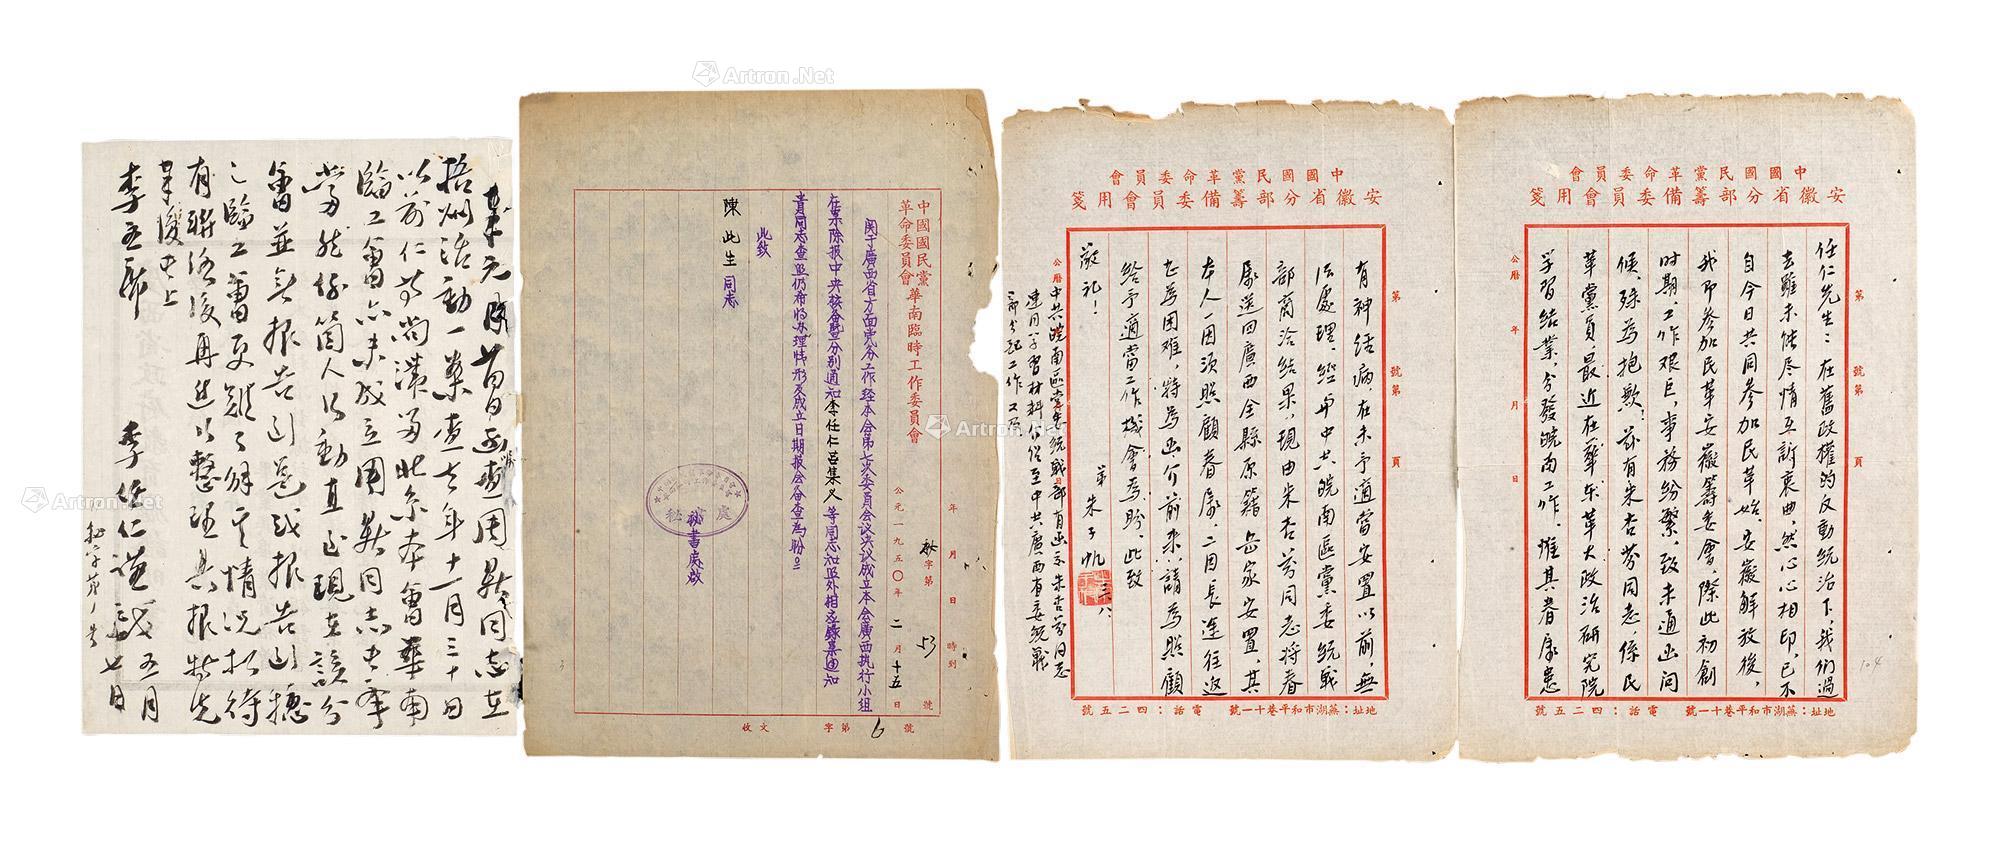 中國國民黨革命委員會
安徽省分部籌備委員會用箋
第 號第 頁
任仁先生：在舊政權的反動統治下，我們過
去雖未能尽情互訴衷曲，然心心相印，已不
自今日共同参加民革始。安徽解放後，
我即参加民革安徽籌委會，際此初創
时期，工作艰巨，事務紛繁，致未通函问
候，殊为抱歉！兹有朱杏芬同志係民
革黨員，最近在華东革大政治研究院
学習結業，分發皖南工作，惟其眷屬患
公曆 年 月 日
地址：蕪湖市和平巷十一號 電話：四二五號
104
中國國民黨革命委員會
安徽省分部籌備委員會用箋
第 號第 頁
有神经病在未予適當安置以前，無
法處理，經与中共皖南區黨委統戰
部商洽结果，現由朱杏芬同志将眷
屬送回廣西全縣原籍岳家安置，其
本人一因須照顧眷屬，二因長途往返
尤为困难，特为函介前来，請为照顧
给予適當工作機會為盼，此致
敬礼！
弟朱子帆
公曆
中共皖南區党委统战部有函示朱杏芬同志
連同学習材料介绍至中共廣西省委统戰
部分配工作又及
地址：蕪湖市和平巷十一號 電話：四二五號
中國國民黨
革命委員會
華南臨時工作委員會
年 月 日 時到
秘字第 53 號
公元一九五〇年二月十五日
関于廣西省方面党务工作经本会第七次委员会议决议成立本会廣西执行小组
在案除报中央核备暨分别通知李任仁吕集义等同志知照外相应録案通知
貴同志查照仍希将办理情形及成立日期报会备查為盼
此致
陳此生同志
秘書處啟
收文 字第 6 號
梧州活動一案查去年十一月三十日
以前仁等尚滯留北京本會華南
臨工會亦未成立周獻同志去年
當然係箇人行動直至現在該分
會並無报告到邕或报告到穗
之臨工會更難了解其情况擬待
有聯络後再进以整理具报特先
李任仁謹啟 五月
七日
Artron.Net
Artron.Net
Artron.Net
Artron.Net